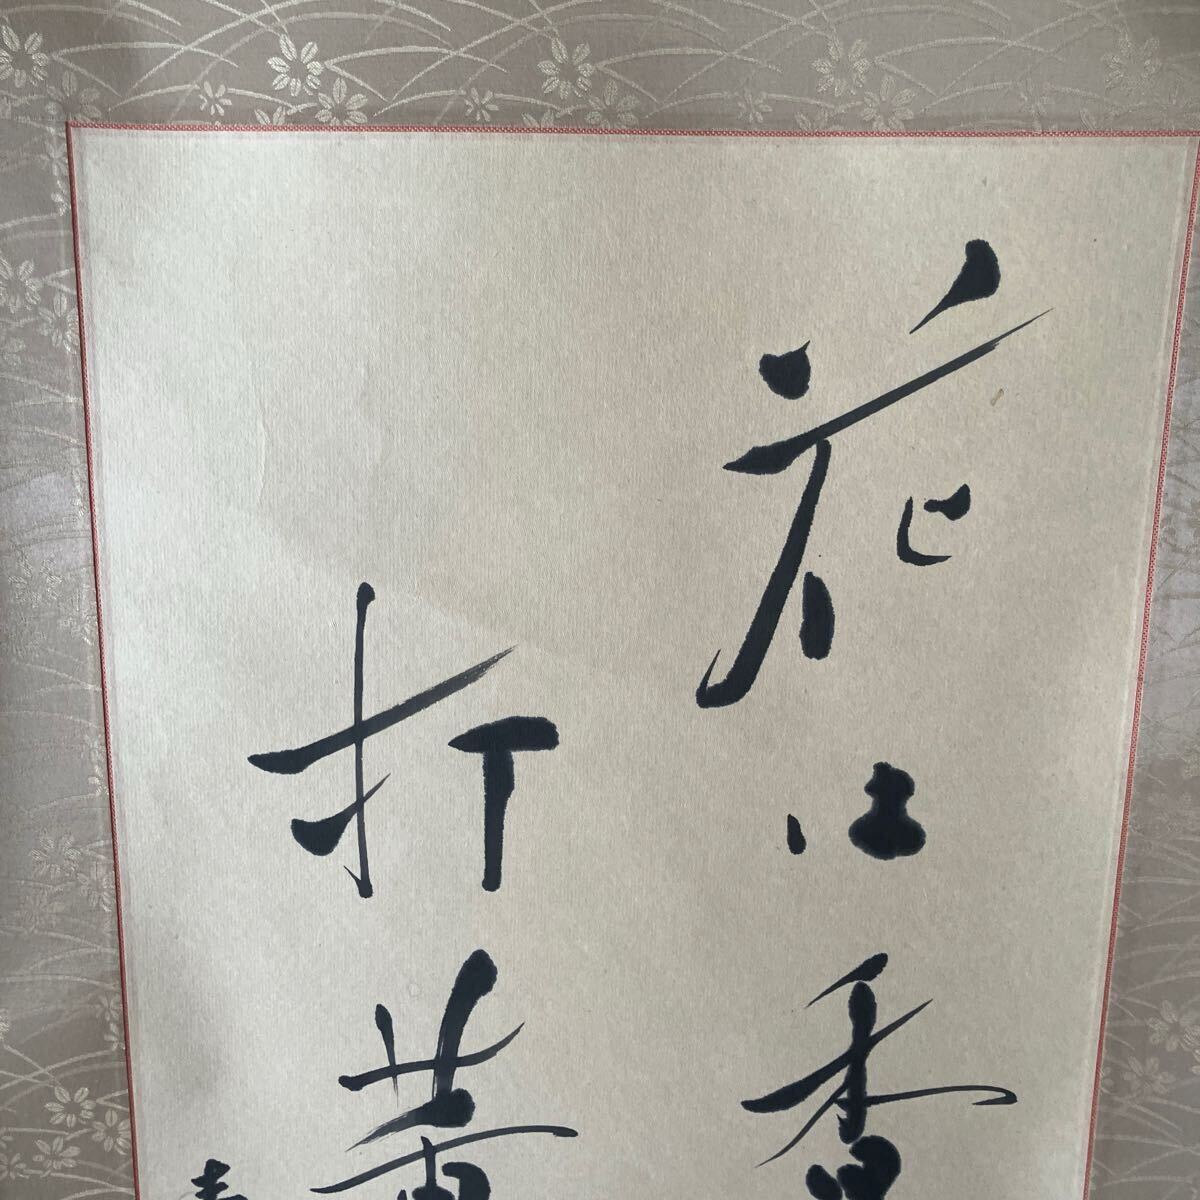 花は香
打薫